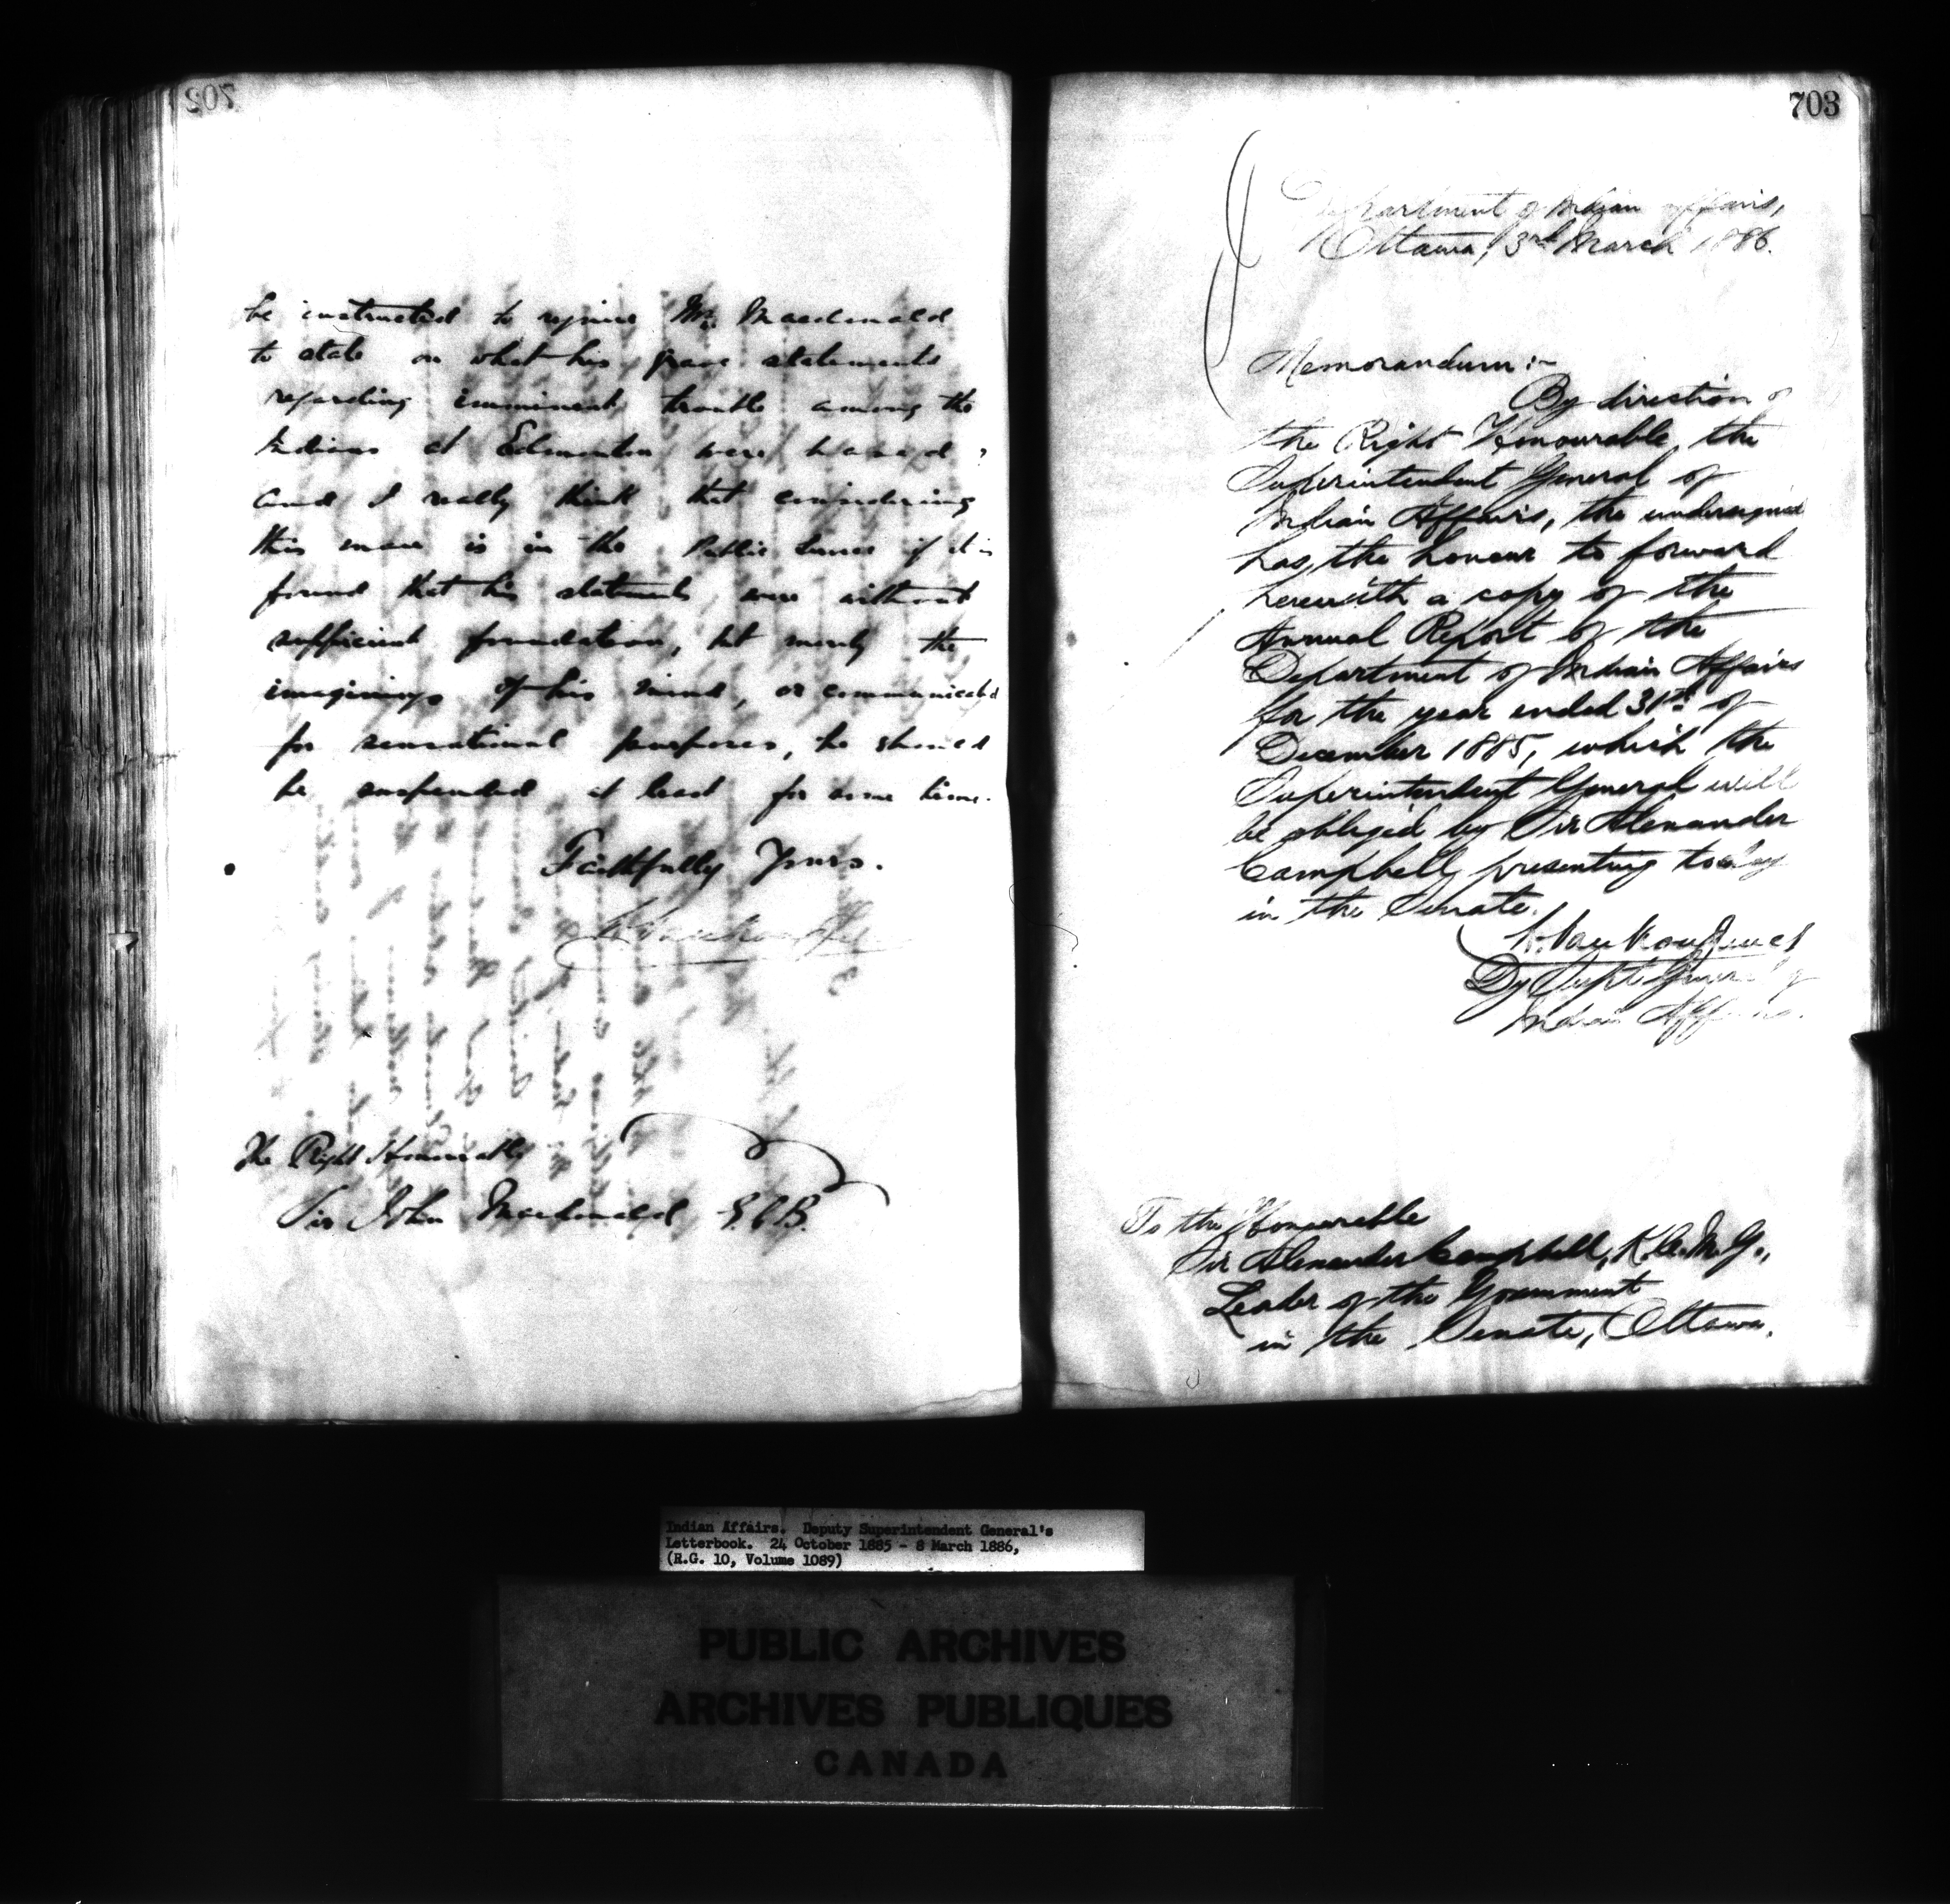 702
be instructed to require Mr. Macdonald
to state on what his grave statements
regarding imminent trouble among the
Indians at Edmonton were based;
and I really think that considering
this man is in the Public Service if it is
found that his statements were without
sufficient foundation, but merely the
imaginings of his mind, or communicated
for sensational purposes, he should
be suspended at least for some time.
Faithfully Yours.
L. Vankoughnet
The Right Honourable
Sir John Macdonald G.C.B.
703
Department of Indian Affairs,
Ottawa, 3rd March 1886.
Memorandum:-
By direction of
the Right Honourable, the
Superintendent General of
Indian Affairs, the undersigned
has the honour to forward
herewith a copy of the
Annual Report of the
Department of Indian Affairs
for the year ended 31st of
December 1885, which the
Superintendent General will
be obliged by Sir Alexander
Campbell presenting to-day
in the Senate.
L. Vankoughnet
Dy Supt General of
Indian Affairs.
To the Honourable
Sir Alexander Campbell, K.C.M.G.,
Leader of the Government
in the Senate, Ottawa.
Indian Affairs. Deputy Superintendent General's
Letterbook. 24 October 1885 - 8 March 1886,
(R.G. 10, Volume 1089)
PUBLIC ARCHIVES
ARCHIVES PUBLIQUES
CANADA